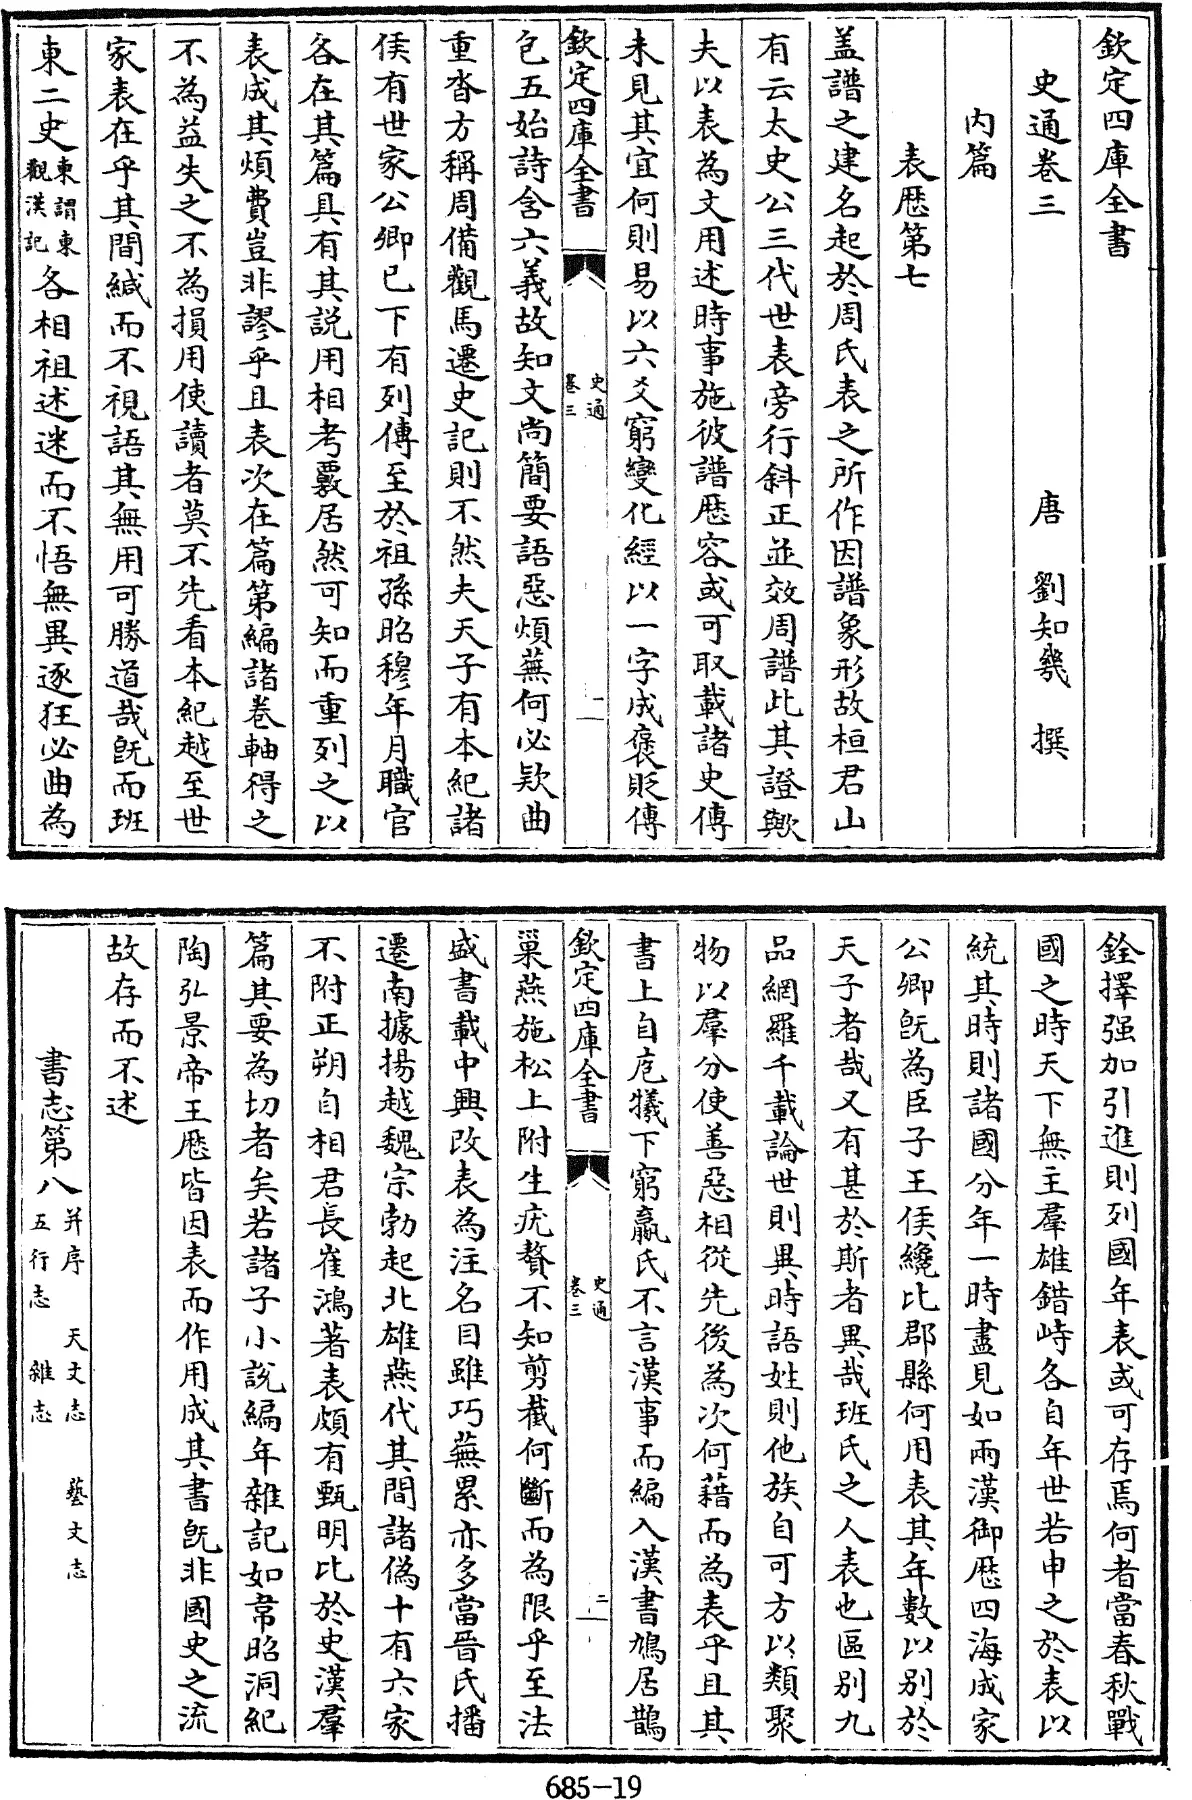 欽定四庫全書
史通卷三
唐　劉知幾　撰
内篇
表歴第七
盖譜之建名起於周氏表之所作因譜象形故桓君山
有云太史公三代世表旁行斜正並效周譜此其證歟
夫以表為文用述時事施彼譜歴容或可取載諸史傳
未見其宜何則易以六爻窮變化經以一字成褒貶傳
欽定四庫全書
史通
卷三
一
包五始詩含六義故知文尚簡要語惡煩蕪何必欵曲
重沓方稱周備觀馬遷史記則不然夫天子有本紀諸
侯有世家公卿已下有列傳至於祖孫昭穆年月職官
各在其篇具有其説用相考覈居然可知而重列之以
表成其煩費豈非謬乎且表次在篇第編諸卷軸得之
不為益失之不為損用使讀者莫不先看本紀越至世
家表在乎其間緘而不視語其無用可勝道哉旣而班
東二史東謂東觀漢記各相祖述迷而不悟無異逐狂必曲為
銓擇强加引進則列國年表或可存焉何者當春秋戰
國之時天下無主羣雄錯峙各自年世若申之於表以
統其時則諸國分年一時盡見如兩漢御歴四海成家
公卿旣為臣子王侯纔比郡縣何用表其年數以别於
天子者哉又有甚於斯者異哉班氏之人表也區别九
品網羅千載論世則異時語姓則他族自可方以類聚
物以羣分使善惡相從先後為次何藉而為表乎且其
書上自庖犧下窮嬴氏不言漢事而編入漢書鳩居鵲
欽定四庫全書
史通
卷三
二
巢蔦施松上附生疣贅不知剪截何斷而為限乎至法
盛書載中興改表為注名目雖巧蕪累亦多當晉氏播
遷南據揚越魏宗勃起北雄燕代其間諸偽十有六家
不附正朔自相君長崔鴻著表頗有甄明比於史漢羣
篇其要為切者矣若諸子小説編年雜記如韋昭洞紀
陶弘景帝王歴皆因表而作用成其書旣非國史之流
故存而不述
書志第八并序　天文志　藝文志　五行志　雜志
685-19